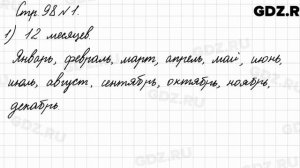 Стр. 98 № 1.
GDZ.RU
1) 12 месяцев
Январь, февраль, март, апрель, май, июнь,
июль, август, сентябрь, октябрь, ноябрь,
декабрь
GDZ.RU